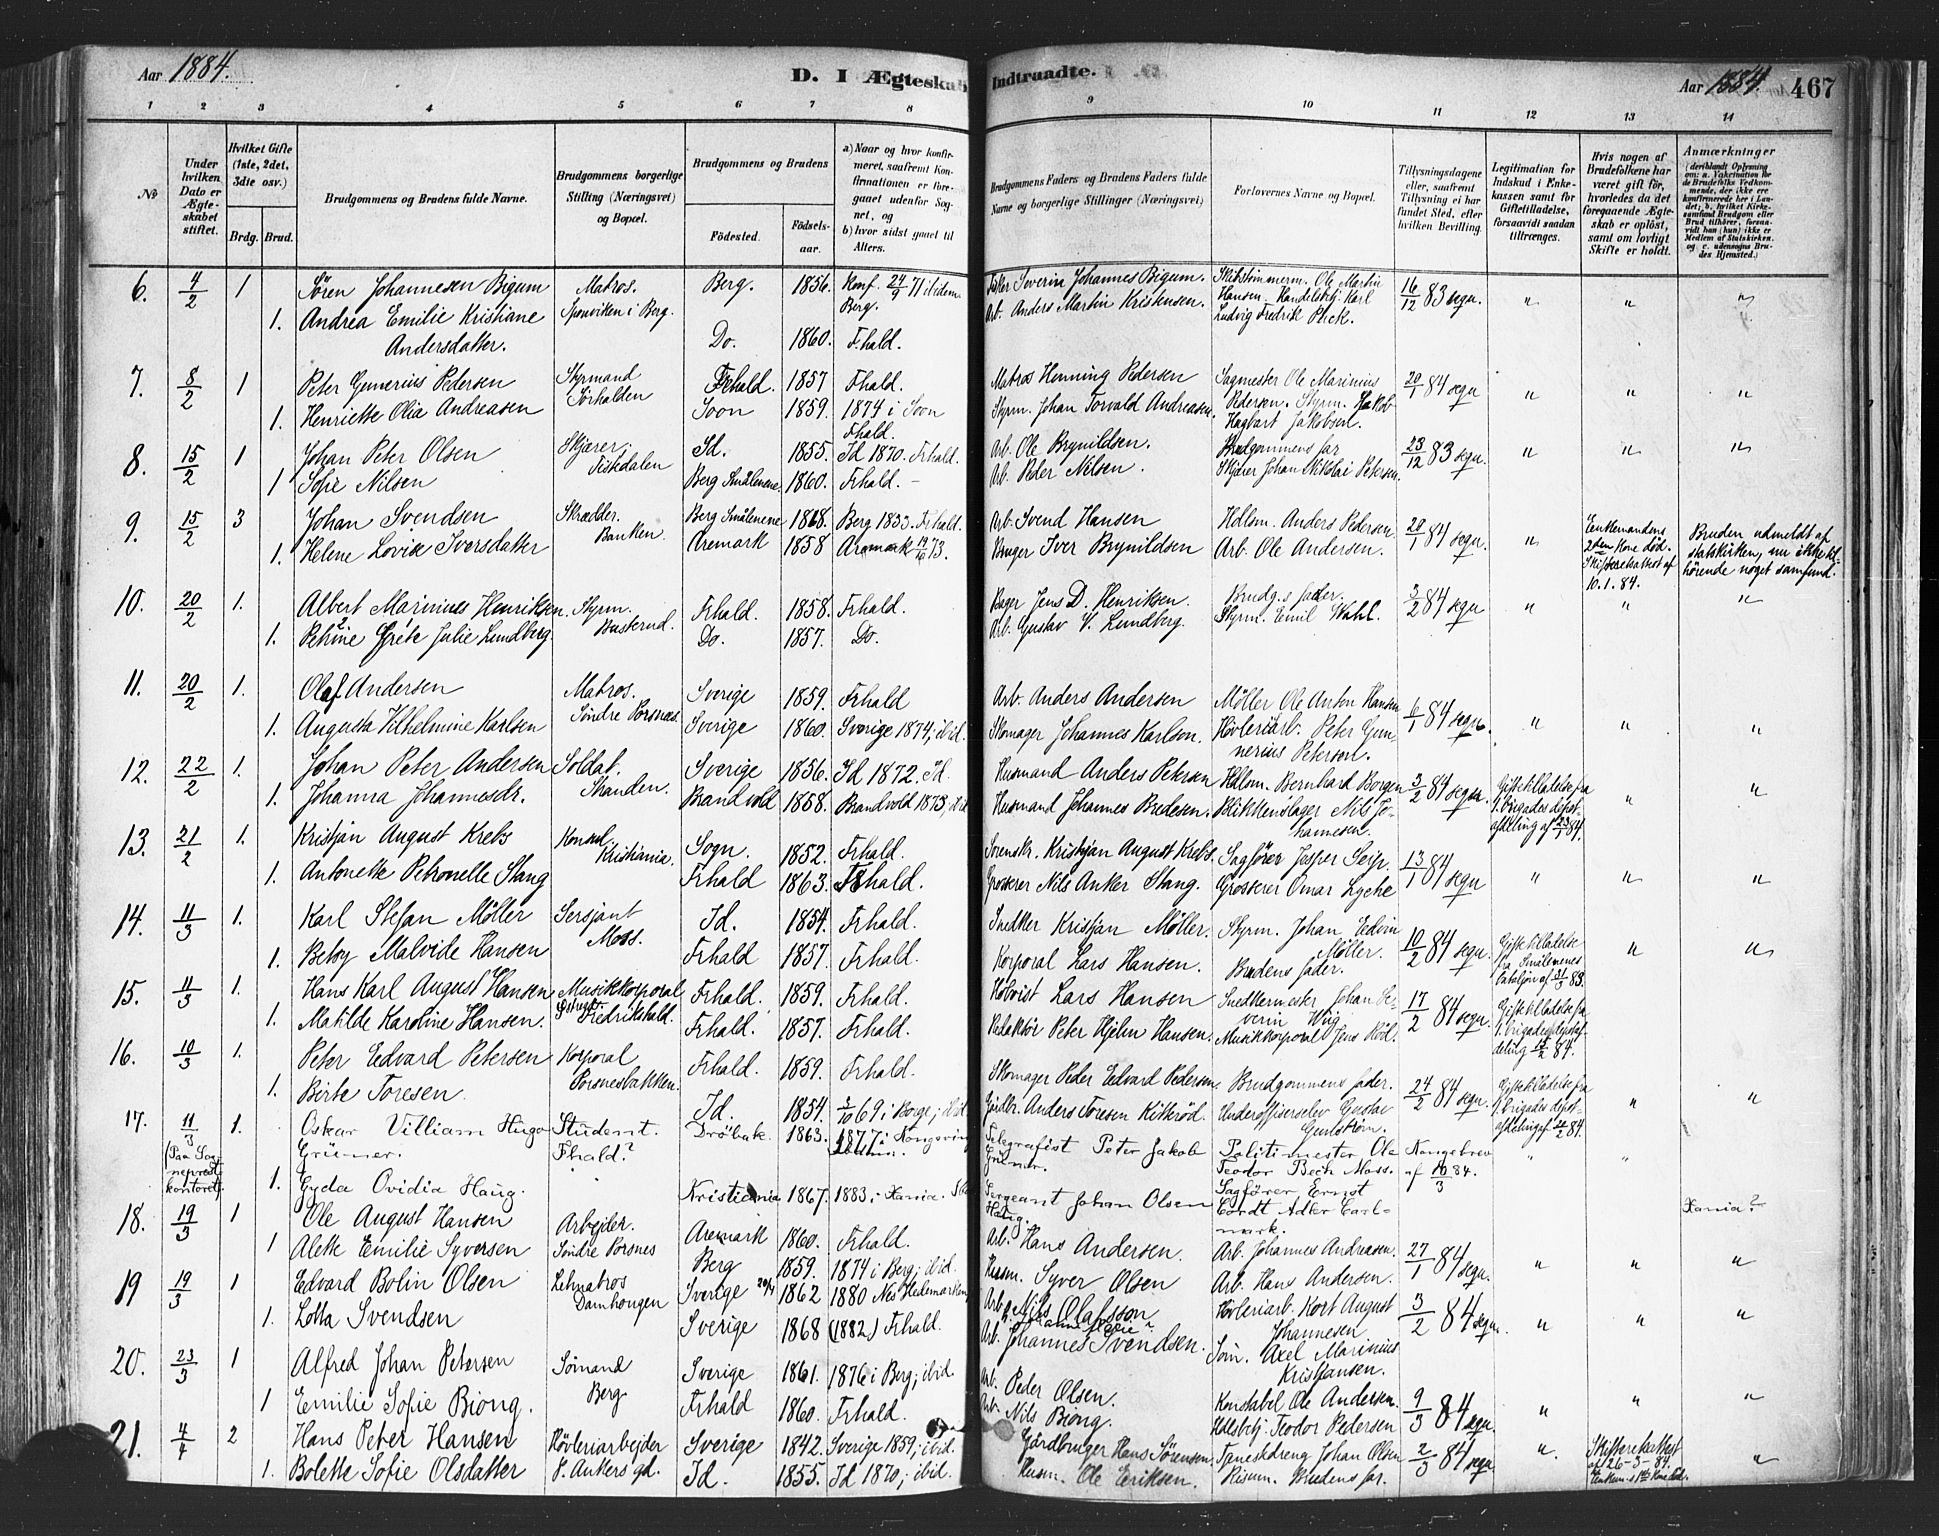 Aar 1884.
D. I Ægteskab Indtraadte.
Aar 1884.
467
1 2 3 4 5 6 7 8 9 10 11 12 13 14
No
Under hvilken Dato er Ægteskabet stiftet.
Hvilket Gifte (1ste, 2det, 3die osv.)
Brdg. Brud.
Brudgommens og Brudens fulde Navne.
Brudgommens borgerlige Stilling (Næringsvei) og Bopæl.
Brudgommens og Brudens
Fødested.
Fødselsaar.
a) Naar og hvor konfirmeret, saafremt Konfirmationen er foregaaet udenfor Sognet, og
b) hvor sidst gaaet til Alters.
Brudgommens Faders og Brudens Faders fulde Navne og borgerlige Stillinger (Næringsvei)
Forlovernes Navne og Bopæl.
Tillysningsdagene eller, saafremt Tillysning ei har fundet Sted, efter hvilken Bevilling.
Legitimation for Indskud i Enkekassen samt for Giftetilladelse, forsaavidt saadan tiltrænges.
Hvis nogen af Brudefolkene har været gift før, hvorledes da det foregaaende Ægteskab er opløst, samt om lovligt Skifte er holdt.
Anmærkninger
6. 4/2 1 Søren Johannesen Bigum Matros. Berg. 1856. Konf. 24/9 71 ibidem Severin Johannes Bigum. Skibstømmerm. Ole Martin 16/12 83 segu. " " "
1. Andrea Emilie Kristiane Sponviken i Berg. Berg. Arb. Anders Martin Kristensen. Hansen Handelsbtj. Karl
Andersdatter. Do. 1860. Frhald. Ludvig Fredrik Plick.
7. 8/2 1 Peter Gunerius Pedersen Styrmand Frhald. 1857 Fhald. Matros Henning Pedersen Sagmester Ole Marinius 20/1 84 segu " " "
1. Henriette Olia Andreasen Sørhalden Soon 1859. 1874 i Soon Styrm. Johan Torvald Andreasen. Pedersen. Styrm. Jakob
Fhald. Hagbart Jakobsen.
8. 15/2 1 Johan Peter Olsen Skjærer. Id. 1855. Id 1870. Frhald. Arb. Ole Brynildsen. Brudgommens far 23/12 83 segu. " " "
1 Sofie Nilsen Tistedalen Berg Smålenene. 1860. Frhald. Arb. Peder Nilsen. Skjærer Johan Nikolai Petersen.
9. 15/2 3 Johan Svendsen Skrædder. Berg Smålenene 1818. Berg 1833. Frhald. Arb. Svend Hansen Hdlsm. Anders Pedersen 20/1 84 segu. " Enkemandens 2den Kone død. Skifteretsattest af 10.1.84. Bruden udmeldt af statskirken, nu ikke tilhørende noget samfund.
1. Helene Lovise Iversdatter Banken. Aremark 1858 Aremark 19/6 73. Bruger Iver Brynildsen Arb. Ole Andersen.
10. 20/2 1. Albert Marinius Henriksen. Styrm. Frhald. 1858. Frhald. Bager Jens D. Henriksen. Brudg.s fader. 3/2 84 segu " " "
1. Petrine Grete Julie Lundberg. Busterud. Do. 1857. Do. Arb. Gustav V. Lundberg. Styrm. Emil Wahl.
11. 20/2 1. Olaf Andersen Matros. Sverige 1859. Frhald Arb. Anders Andersen Møller Ole Anton Hansen 6/1 84 segu. " " "
1. Augusta Vilhelmine Karlsen Søndre Porsnes. Sverige 1860. Sverige 1874; ibid. Skomager Johannes Karlson. Høvleriarb. Peter Gunnerius Petersen.
12. 22/2 1. Johan Peter Andersen Soldat. Sverige 1856. Id 1872. Id. Husmand Anders Petersen Hdlsm. Bernhard Borgen 3/2 84 segu. Giftetilladelse fra 1. brigades depotafdeling af 23/1 84. " "
1. Johanna Johannesdr. Stranden. Brandvold 1858. Brandvold 1873, ibid Husmand Johannes Bredesen. Blikkenslager Nils Johannesen.
13. 21/2 1. Kristjan August Krebs Konsul Sogn. 1852. Frhald. Sorenskr. Kristjan August Krebs. Sagfører Jesper Seip. 13/1 84 segu " " "
1. Antonette Petronelle Stang Kristiania. Frhald 1863. Frhald. Grosserer Nils Anker Stang. Grosserer Omar Lyche
14. 11/3 1. Karl Stefan Møller Sersjant Id. 1854. Frhald. Snedker Kristjan Møller. Styrm. Johan Edvin Møller. 10/2 84 segu. Giftetilladelse fra Smålenenes bataljon af 31/3 83. " "
1. Betsy Malvide Hansen Moss. Frhald 1857. Frhald. Korporal Lars Hansen. Brudens fader.
15. 11/3 1. Hans Karl August Hansen Musikkorporal Frhald. 1859. Frhald. Lars Hansen Snedkermester Johan Severin Wiig 17/2 84 segu. Giftetilladelse fra 1. brigades depotafdeling 15/2 84.
1. Matilde Karoline Hansen. Fredrikshald. Frhald. 1857. Frhald. Redaktør Peter Hjelm Hansen. Musikkorporal Jens Rød.
16. 10/3 1. Peter Edvard Petersen Korporal Frhald. 1859. Frhald. Skomager Peder Edvard Pedersen. Brudgommens fader. 24/2 84 segu. Giftetilladelse fra 1. brigades depotafdeling af 22/2 84. " "
1. Birte Toresen. Porsnesbakken. Id. 1854. 3/10 69 i Borge; ibid Gårdbr. Anders Toresen Kitterød. Underofficerselev Gustav Gulstrøm.
17. 11/3 1. Oskar Villiam Hugo Student. Drøbak. 1863. 1877 i Kongsvinger Telegrafist Peter Jakob Politimester Ole Kongebrev " "
(Paa Sogneprestkontoret) Grüner. Fhald? Grüner. Teodor Bech Moss. af 10/3 84.
1. Gyda Ovidia Haug. Kristiania 1867. 1883 i Xania. Sergeant Johan Olsen Haug. Sagfører Ernst Cordt Adler Carlmark. Xania?
18. 19/3 1 Ole August Hansen Arbejder. Aremark 1860. Frhald. Arb. Hans Andersen. Arb. Johannes Andreasen. 27/1 84 segu. " " "
1 Alette Emilie Syversen Søndre Porsnes Berg 1859. 1874 i Berg; ibid. Husm. Syver Olsen Arb. Hans Andersen.
19 19/3 1 Edvard Bolin Olsen Letmatros Sverige 20/4 1862 1880 Nes Hedemarken Arb. Nils Olafsson Høvleriarb. Kort August Johannesen 3/2 84 segu. " " "
1. Lotta Svendsen Damhaugen Sverige 1868 (1882) Frhald. Arb. Johannes Svendsen. Søm. Axel Marinius Kristjansen.
20. 23/3 1 Alfred Johan Petersen Sømand Sverige 1861. 1876 i Berg; ibid. Arb. Peder Olsen. Konstabel Ole Andersen. 9/3 84 segu. " " "
1 Emilie Sofie Biong. Berg Frhald 1860. Frhald. Arb. Nils Biong. Hdlsbtj. Teodor Pedersen
21. 4/4 2 Hans Peter Hansen Høvleriarbejder Sverige 1842. Sverige 1859; ibid. Gårdbruger Hans Sørensen. Tjenestedreng Johan Olsen 2/3 84 segu " Skifteretsattest af 26-3-84. Enkem.s 1ste Kone død. "
1. Bolette Sofie Olsdatter P. Ankers gd. Id. 1855. Id 1870; ibid. Husm. Ole Eriksen. Risum. Brudens far.